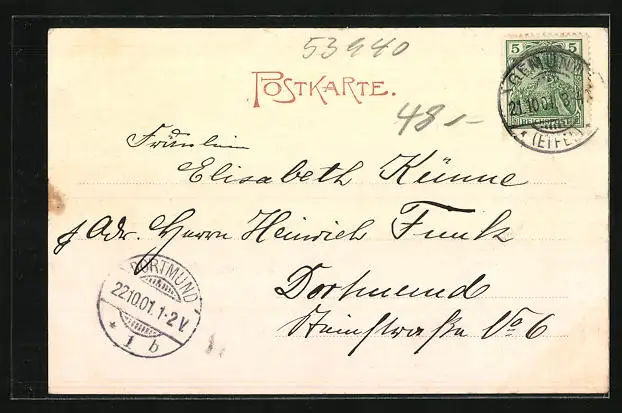 53940
POSTKARTE.
48.-
5 5
REICHSPOST
GEMÜND
21.10.01
* (EIFEL) *
Fräulein
Elisabeth Künne
p Adr. Herrn Heinrich Funk
Dortmund
Steinstraße No 6
DORTMUND
22.10.01.1-2V.
* 1 b